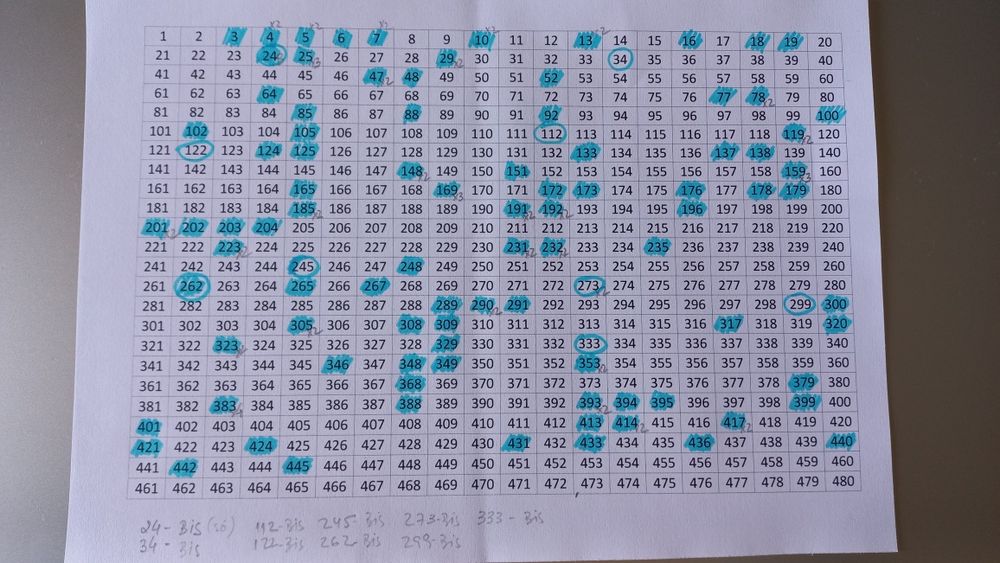 1 2 3 4 5 6 7 8 9 10 11 12 13 14 15 16 17 18 19 20
21 22 23 24 25 26 27 28 29 30 31 32 33 34 35 36 37 38 39 40
41 42 43 44 45 46 47 48 49 50 51 52 53 54 55 56 57 58 59 60
61 62 63 64 65 66 67 68 69 70 71 72 73 74 75 76 77 78 79 80
81 82 83 84 85 86 87 88 89 90 91 92 93 94 95 96 97 98 99 100
101 102 103 104 105 106 107 108 109 110 111 112 113 114 115 116 117 118 119 120
121 122 123 124 125 126 127 128 129 130 131 132 133 134 135 136 137 138 139 140
141 142 143 144 145 146 147 148 149 150 151 152 153 154 155 156 157 158 159 160
161 162 163 164 165 166 167 168 169 170 171 172 173 174 175 176 177 178 179 180
181 182 183 184 185 186 187 188 189 190 191 192 193 194 195 196 197 198 199 200
201 202 203 204 205 206 207 208 209 210 211 212 213 214 215 216 217 218 219 220
221 222 223 224 225 226 227 228 229 230 231 232 233 234 235 236 237 238 239 240
241 242 243 244 245 246 247 248 249 250 251 252 253 254 255 256 257 258 259 260
261 262 263 264 265 266 267 268 269 270 271 272 273 274 275 276 277 278 279 280
281 282 283 284 285 286 287 288 289 290 291 292 293 294 295 296 297 298 299 300
301 302 303 304 305 306 307 308 309 310 311 312 313 314 315 316 317 318 319 320
321 322 323 324 325 326 327 328 329 330 331 332 333 334 335 336 337 338 339 340
341 342 343 344 345 346 347 348 349 350 351 352 353 354 355 356 357 358 359 360
361 362 363 364 365 366 367 368 369 370 371 372 373 374 375 376 377 378 379 380
381 382 383 384 385 386 387 388 389 390 391 392 393 394 395 396 397 398 399 400
401 402 403 404 405 406 407 408 409 410 411 412 413 414 415 416 417 418 419 420
421 422 423 424 425 426 427 428 429 430 431 432 433 434 435 436 437 438 439 440
441 442 443 444 445 446 447 448 449 450 451 452 453 454 455 456 457 458 459 460
461 462 463 464 465 466 467 468 469 470 471 472 473 474 475 476 477 478 479 480
24 - Bis 112-Bis 245-Bis 273-Bis 333 - Bis
34 - Bis 122-Bis 262-Bis 299-Bis